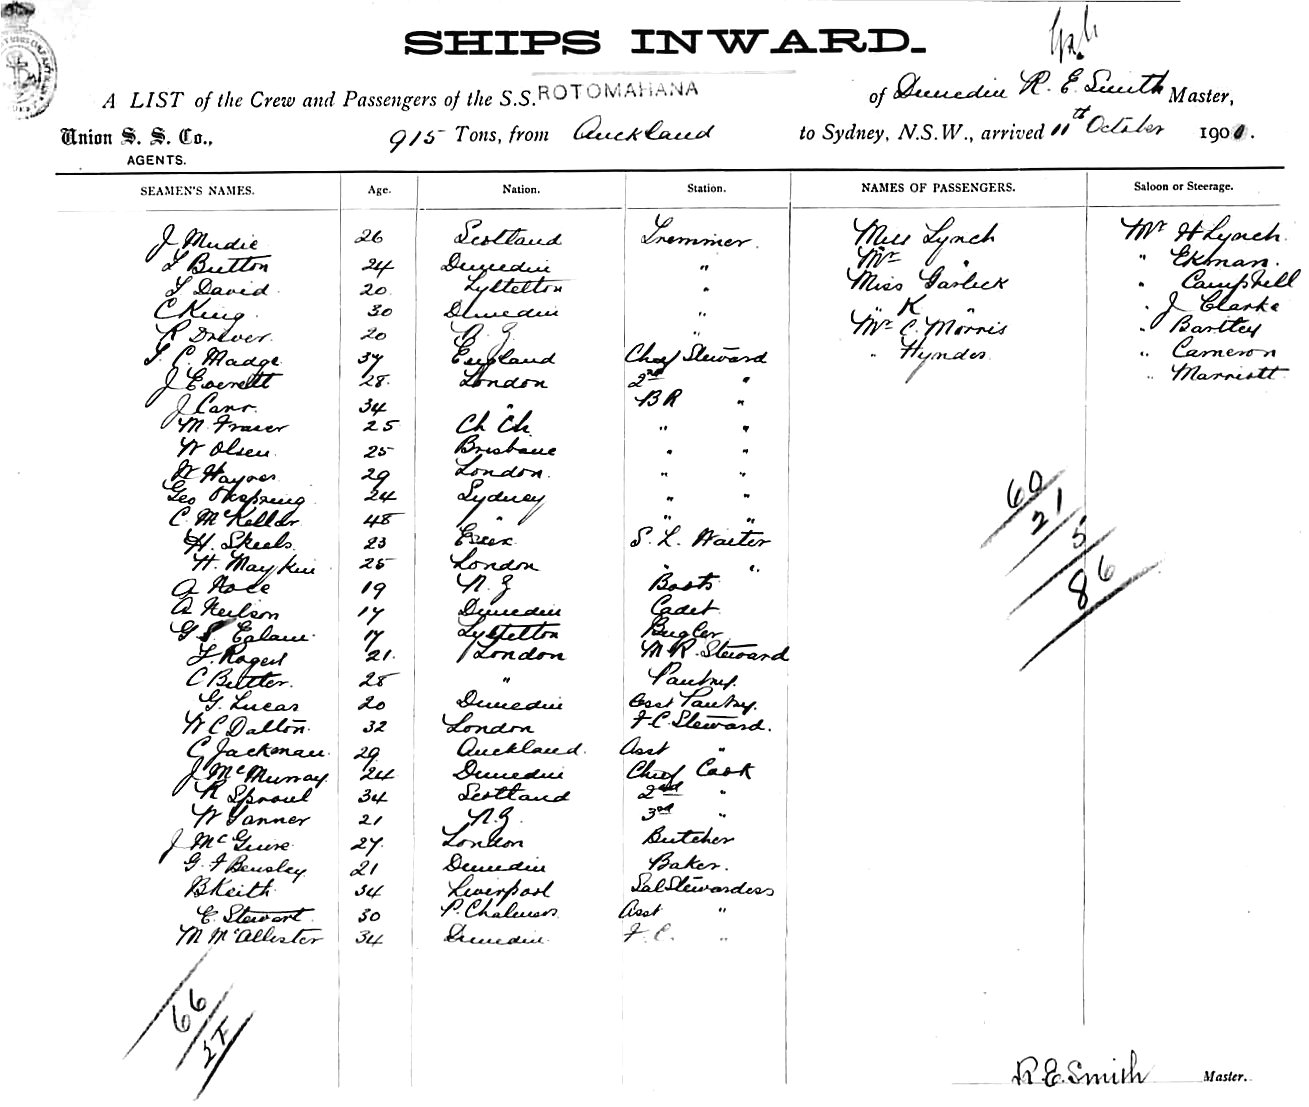 SHIPS INWARD.
A LIST of the Crew and Passengers of the S.S. ROTOMAHANA of Dunedin R. E. Smith Master,
Union S. S. Co., 915 Tons, from Auckland to Sydney, N.S.W., arrived 11th October 190
AGENTS.
SEAMEN'S NAMES. Age. Nation. Station. NAMES OF PASSENGERS. Saloon or Steerage.
J Mudie 26 Scotland Tremmer. Miss Lynch Mr H Lynch
T Button 24 Dunedin " Mr " " Ekman.
T David 20 Lyttelton " Miss Garlick " Campbell
C King 30 Dunedin " " K " " J Clarke
R Drever 20 N Z " Mr C. Morris " Bartley
T. C. Madge 37 England Chief Steward " Hyndes " Cameron
J Everett 28 London 2nd " " Marriott
J Carr 34 " BR "
M. Fraser 25 Ch Ch " "
W Olsen 25 Brisbane " "
W Haynes 29 London " "
Geo 24 Sydney " "
C. McKellar 48 " " "
H. Skeels 23 Essex S. L. Waiter
H. May 25 London " "
A 19 N. Z Boots
A Neilson 17 Dunedin Cadet
G S. 17 Lyttelton Bugler
F. Rogers 21 London M R. Steward
C Butter. 28 " Pantry.
G. Lucas 20 Dunedin Asst Pantry.
W C Dalton 32 London F. C. Steward.
C Jackman 29 Auckland Asst "
J McMurray 24 Dunedin Chief Cook
R Sproul 34 Scotland 2nd "
W Tanner 21 N. Z. 3rd "
J McGuire 27 London Butcher
G. F Bensley 21 Dunedin Baker.
B Keith 34 Liverpool Sal Stewardess
E. Stewart 30 P. Chalmers Asst "
M McAllister 34 Dunedin F. C. "
60
21
5
86
66
R E Smith Master.